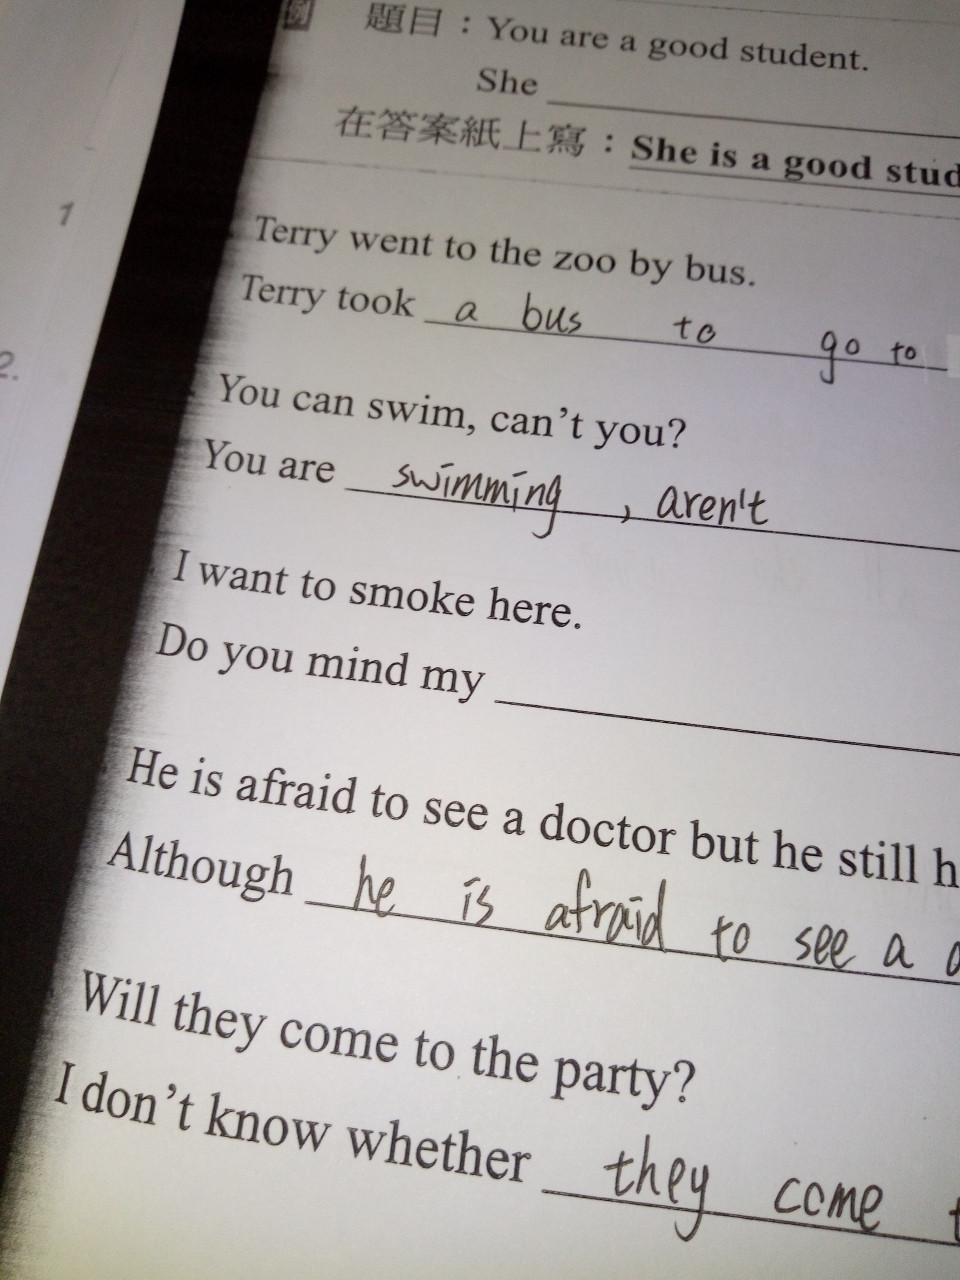 例 題目：You are a good student.
She
在答案紙上寫：She is a good stud
1
Terry went to the zoo by bus.
Terry took a bus to go to
2.
You can swim, can't you?
You are swimming, aren't
I want to smoke here.
Do you mind my
He is afraid to see a doctor but he still h
Although he is afraid to see a d
Will they come to the party?
I don't know whether they come t